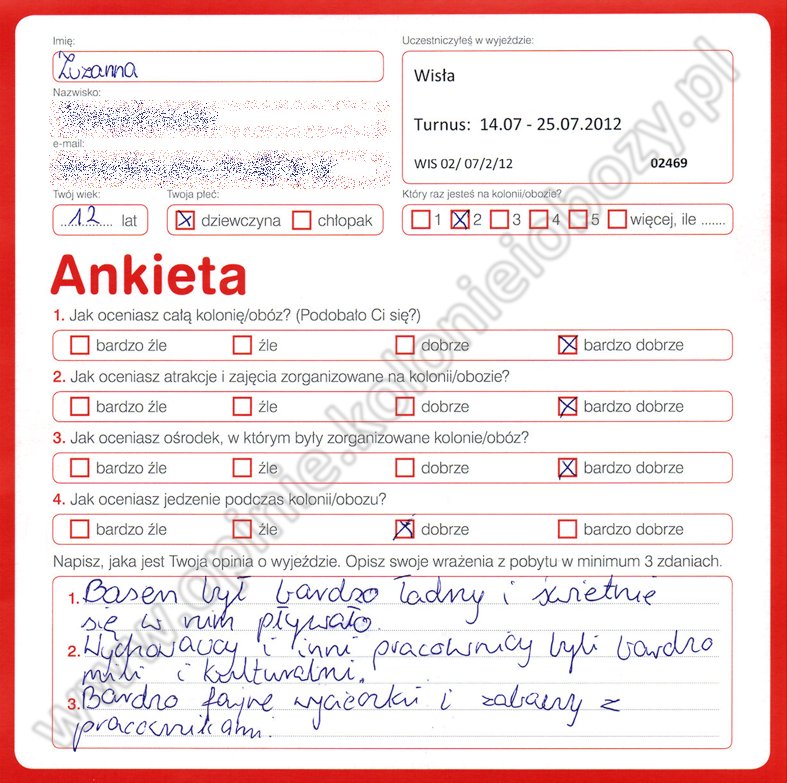 Imię:
Zuzanna
Uczestniczyłeś w wyjeździe:
Wisła
Turnus: 14.07 - 25.07.2012
WIS 02/ 07/2/12 02469
Nazwisko:
e-mail:
Twój wiek:
12 lat
Twoja płeć:
dziewczyna chłopak
Który raz jesteś na kolonii/obozie?
1 2 3 4 5 więcej, ile .......
Ankieta
1. Jak oceniasz całą kolonię/obóz? (Podobało Ci się?)
bardzo źle źle dobrze bardzo dobrze
2. Jak oceniasz atrakcje i zajęcia zorganizowane na kolonii/obozie?
bardzo źle źle dobrze bardzo dobrze
3. Jak oceniasz ośrodek, w którym były zorganizowane kolonie/obóz?
bardzo źle źle dobrze bardzo dobrze
4. Jak oceniasz jedzenie podczas kolonii/obozu?
bardzo źle źle dobrze bardzo dobrze
Napisz, jaka jest Twoja opinia o wyjeździe. Opisz swoje wrażenia z pobytu w minimum 3 zdaniach.
1. Basen był bardzo ładny i świetnie
się w nim pływało.
2. Wychowawcy i inni pracownicy byli bardzo
mili i kulturalni.
3. Bardzo fajne wycieczki i zabawy z
pracownikami.
www.opinie.kolonieiobozy.pl